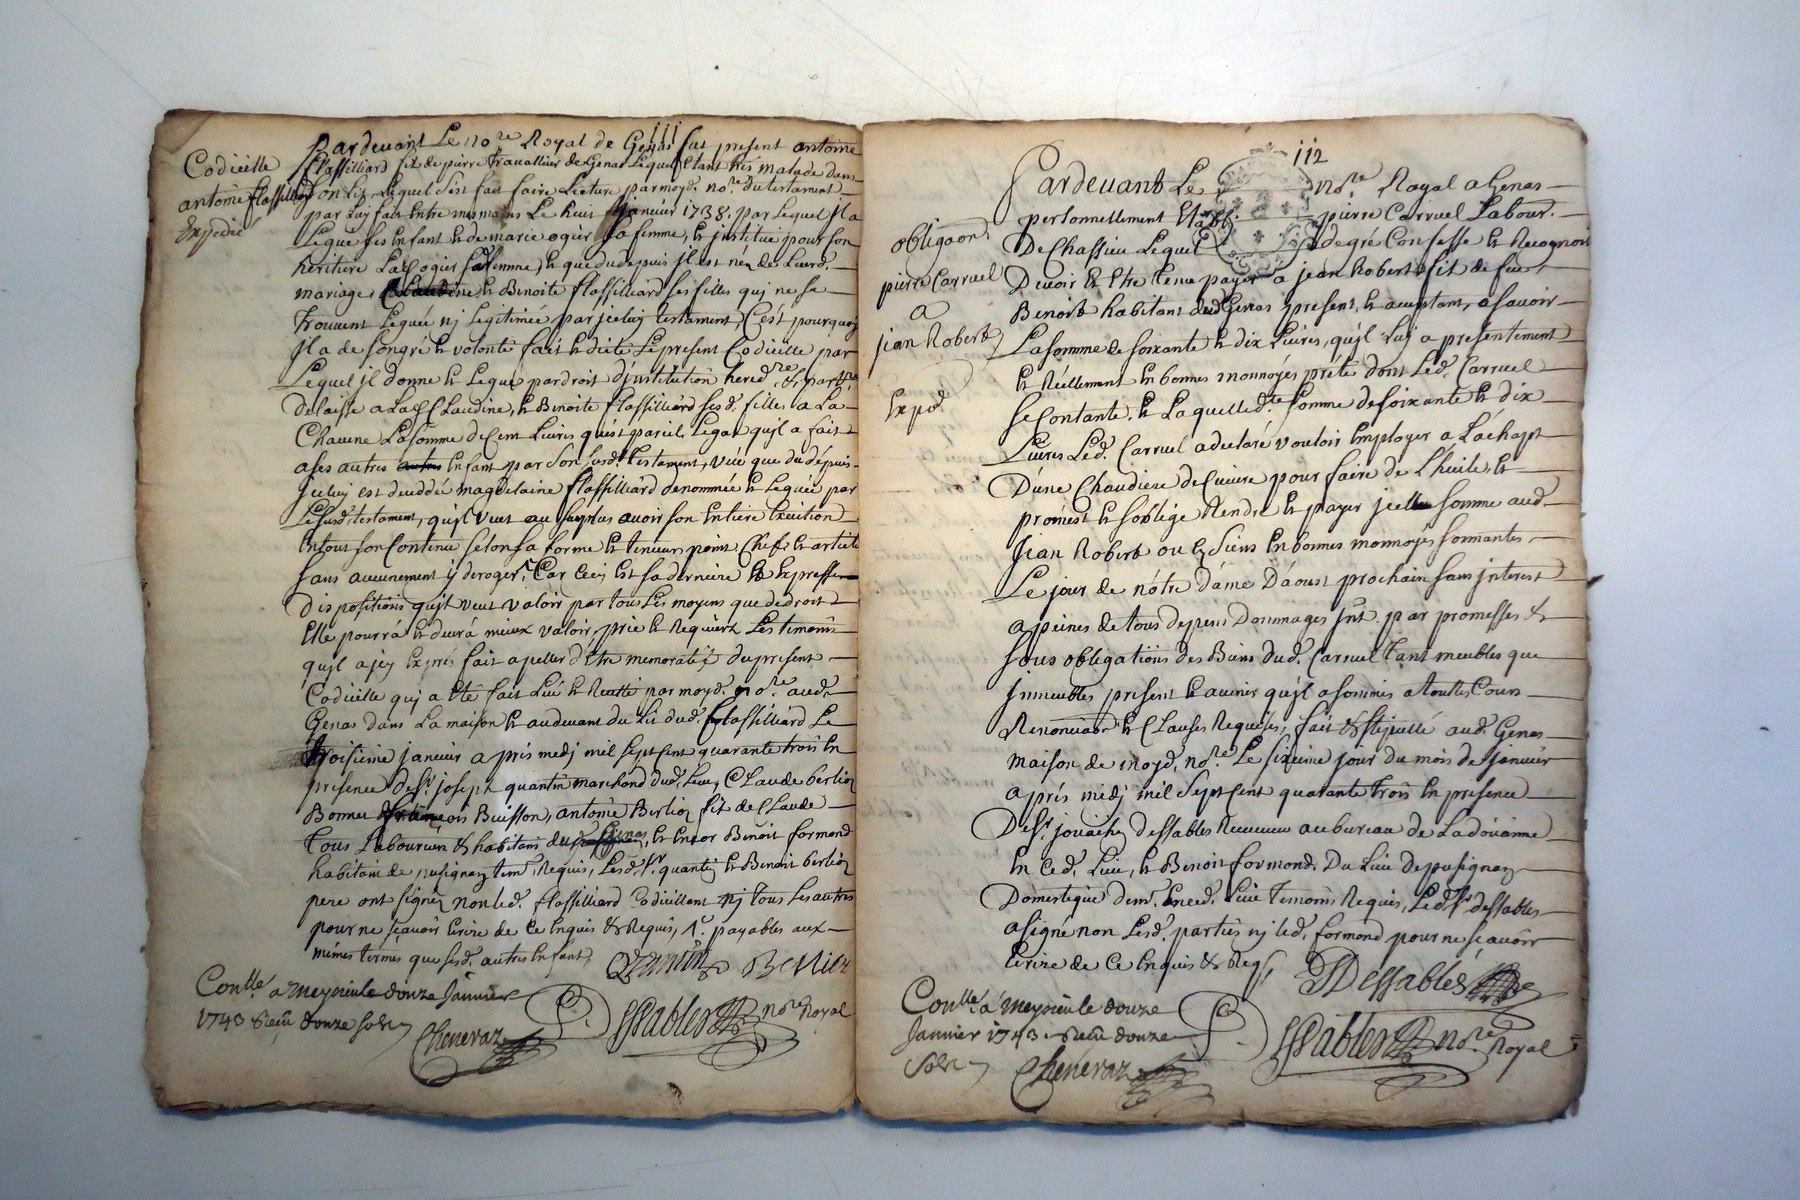 111
Codicille
antoine flassilliard
Expedié
Pardevant Le no.re Royal de Genas fut present antoine
flassilliard fit de pierre travaillier de Genas Lequel Etant tres malade dans
son Lit, Lequel s'est fait faire Lecture par moyd. no.re du testament
par Luy fait Entre mes mains Le huit janvier 1738. par Lequel jl a
Legué ses Enfant & de marie ogier sa femme, & justitué pour son
heritiere Lad. ogier sa femme, & que du depuis jl est néz de Leurd.
mariage Claudine & Benoite flassilliard ses filles quj ne se
trouvent Leguée nj Legitimée par jceluy testament, C'est pourquoy
jl a de son gré & volonté fait & dicté Le present Codicille par
Lequel il donne & Legue par droit d'justitution hered.re & part.re
delaisse a Lad. Claudine, & Benoite flassilliard sesd. filles a La
Chacune La somme de Cent Livres qu'est pareil Legat qu'jl a fait
a ses autres Enfant par son susd. testament, vûe que du dépuis
jceluy est deceddée magdelaine flassilliard denommée & Leguée par
Le susd. testament, qu'jl veut au surplus avoir son Entiere Execution
En tout son Contenu selon sa forme & teneur, point Chef & article
sans aucunement ÿ deroger, Car Cecÿ Est sa derniere & Expresse
dispositions qu'jl veut valoir par tous Les moyens que de droit
Elle pourrá & devrá mieux valoir, prie & Requiert Les temoins
qu'jl a jcy Exprés fait apeller d'Etre memoratif du present
Codicille quj a Eté fait Leu & Recitté par moyd. no.re aud.
Genas dans La maison & audevant du Lit dud. flassilliard Le
troisieme janvier aprés medj mil sept Cent quarante trois En
presence de s.r joseph quantin marchand dud. Lieu, Claude berlioz
Bonnet francois Buisson, antoine Berlioz fit de Claude
tous Laboureurs & habitans dud. Genas, & Encor Benoit formond
habitant de pusignan tem. Requis, Lesd. s.r quantin & Benoit berlioz
pere ont signéz non led. flassilliard Codicillant nj tous Les autres
pour ne sçavoir Ecrire de Ce Enquis & Requis, 1. payables aux
mémes termes que sesd. autres Enfant,
Quantin Berlioz
Con.llé a Meyzieu le douze Janvier
1743 Reçu douze sols
Cheneraz
P. Dessables no.re Royal
112
obligaon
pierre Carruel
a
jean Robert
Exped.
Pardevant Le no.re Royal a Genas
personnellement Etabli pierre Carruel Labour.
De Chassieu Lequel de gré Confesse & Reconnoit
Devoir & Etre tenu payer a jean Robert fit de feu
Benoit habitant dud. Genas present, & acceptant, a savoir
La somme de soixante & dix Livres, qu'jl Luj a presentement
& Réellement En bonnes monnoyés prété dont Led. Carruel
se Contante. & Laquelled.te somme de soixante & dix
Livres Led. Carruel a declaré vouloir Employer a L'áchapt
D'une Chaudiere de Cuivre pour faire de L'huile, &
promest & s'oblige Rendre & payer jcelle somme aud.
jean Robert ou Es Siens En bonnes monnoyés sonnantes
Le jour de nótre dáme D'aoust prochain sans jnterest
a peines de tous depens Dommages jnt. par promesses &
sous obligations des Biens dud. Carruel tant meubles que
jmmeubles present & avenir qu'jl a soumis a toutes Cours
Renonciaon & Clauses Requises, fait & stipullé aud. Genas
maison de moyd. no.re Le sixieme jour du mois de janvier
aprés midj mil Sept Cent quarante trois En presence
De s.r jouachin dessables Receveur au bureau de La doüanne
En Ced. Lieu, & Benoit formond. Du Lieu de pusignan
Domestique dem. Enced. Lieu temoins Requis, Led. s.r dessables
a signé non Lesd. parties nj led. formond pour ne sçavoir
Ecrire de Ce Enquis & Req.
JDessables
Con.llé a Meyzieu le douze
Janvier 1743. Reçu douze
sols
Cheneraz
P. Dessables no.re Royal